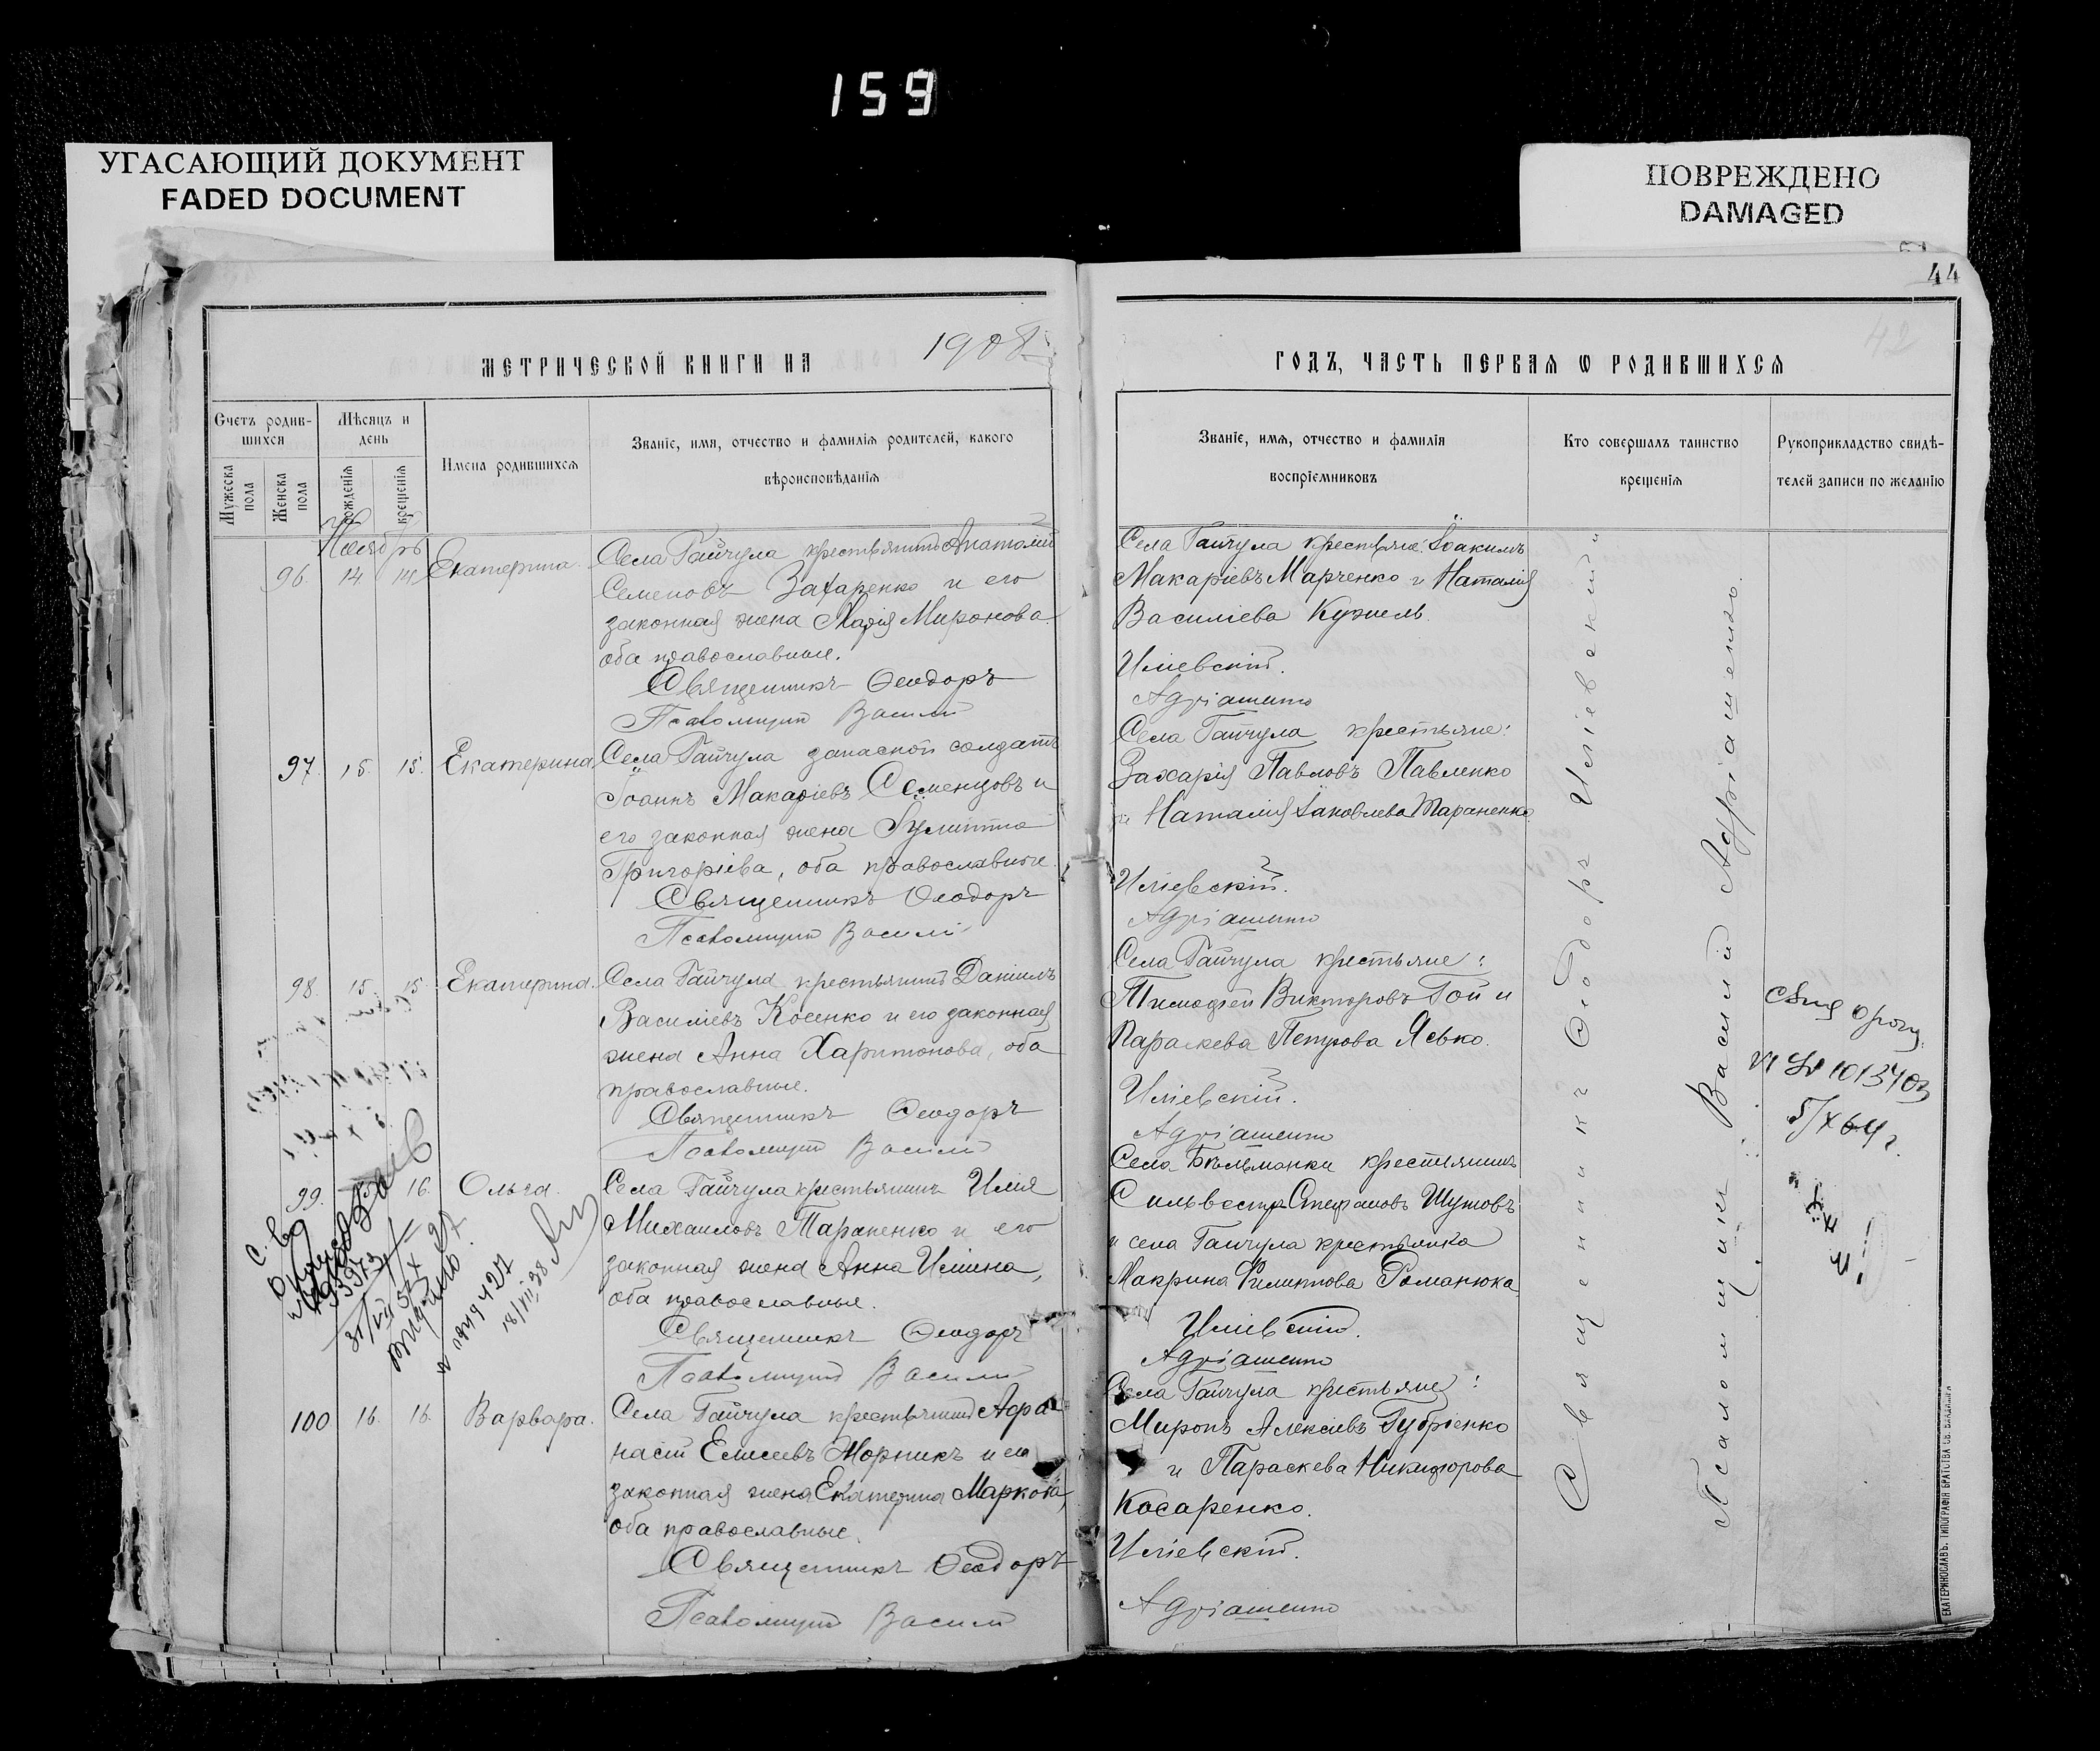 159
УГАСАЮЩИЙ ДОКУМЕНТ
FADED DOCUMENT
ПОВРЕЖДЕНО
DAMAGED
44
42
МЕТРИЧЕСКОЙ КНИГИ НА 1908
ГОДЪ, ЧАСТЬ ПЕРВАЯ Ѡ РОДИВШИХСЯ
Счетъ родив-
шихся
Мужеска
пола
Женска
пола
Мѣсяцъ и
день
рожденія
крещенія
Имена родившихся
Званіе, имя, отчество и фамилія родителей, какого
вѣроисповѣданія
Званіе, имя, отчество и фамилія
воспріемниковъ
Кто совершалъ таинство
крещенія
Рукоприкладство свидѣ-
телей записи по желанію
Ноябрь
96. 14 14 Екатерина.
Села Гайчула крестьянинъ Анатолій
Семеновъ Захаренко и его
законная жена Марія Миронова
оба православные.
Священникъ Ѳеодоръ
Псаломщикъ Василій
Села Гайчула крестьяне: Іоакимъ
Макаріевъ Марченко и Наталія
Василіева Кужель.
Иліевскій.
Адріашенко
97. 15. 15. Екатерина
Села Гайчула запасной солдатъ
Іоаннъ Макаріевъ Семенцовъ и
его законная жена Іулитта
Григоріева, оба православные.
Священникъ Ѳеодоръ
Псаломщикъ Василій
Села Гайчула крестьяне:
Захарія Павловъ Павленко
и Наталія Іаковлева Тараненко
Иліевскій.
Адріашенко
98. 15. 15. Екатерина.
Села Гайчула крестьянинъ Даніилъ
Василіевъ Косенко и его законная
жена Анна Харитонова, оба
православные.
Священникъ Ѳеодоръ
Псаломщикъ Василій
Села Гайчула крестьяне:
Тимофей Викторовъ Гой и
Параскева Петрова Ясько.
Иліевскій.
Адріашенко
99. 16. Ольга.
Села Гайчула крестьянинъ Илія
Михаиловъ Тараненко и его
законная жена Анна Иліина,
оба православные.
Священникъ Ѳеодоръ
Псаломщикъ Василій
Села Бѣльманки крестьянинъ
Сильвестръ Стефановъ Шутовъ
и села Гайчула крестьянка
Макрина Филиппова Романюка
Иліевскій.
Адріашенко
100 16. 16. Варвара.
Села Гайчула крестьянинъ Афа-
насій Елисеевъ Жорникъ и его
законная жена Екатерина Маркова,
оба православные.
Священникъ Ѳеодоръ
Псаломщикъ Василій
Села Гайчула крестьяне:
Миронъ Алексіевъ Губріенко
и Параскева Никифорова
Косаренко.
Иліевскій.
Адріашенко
Священникъ Ѳеодоръ Иліевскій
Псаломщикъ Василій Адріашенко.
5/X 64 г.
18/XII-38
ЕКАТЕРИНОСЛАВЪ. ТИПОГРАФІЯ БРАТСТВА СВ. ВЛАДИМІРА